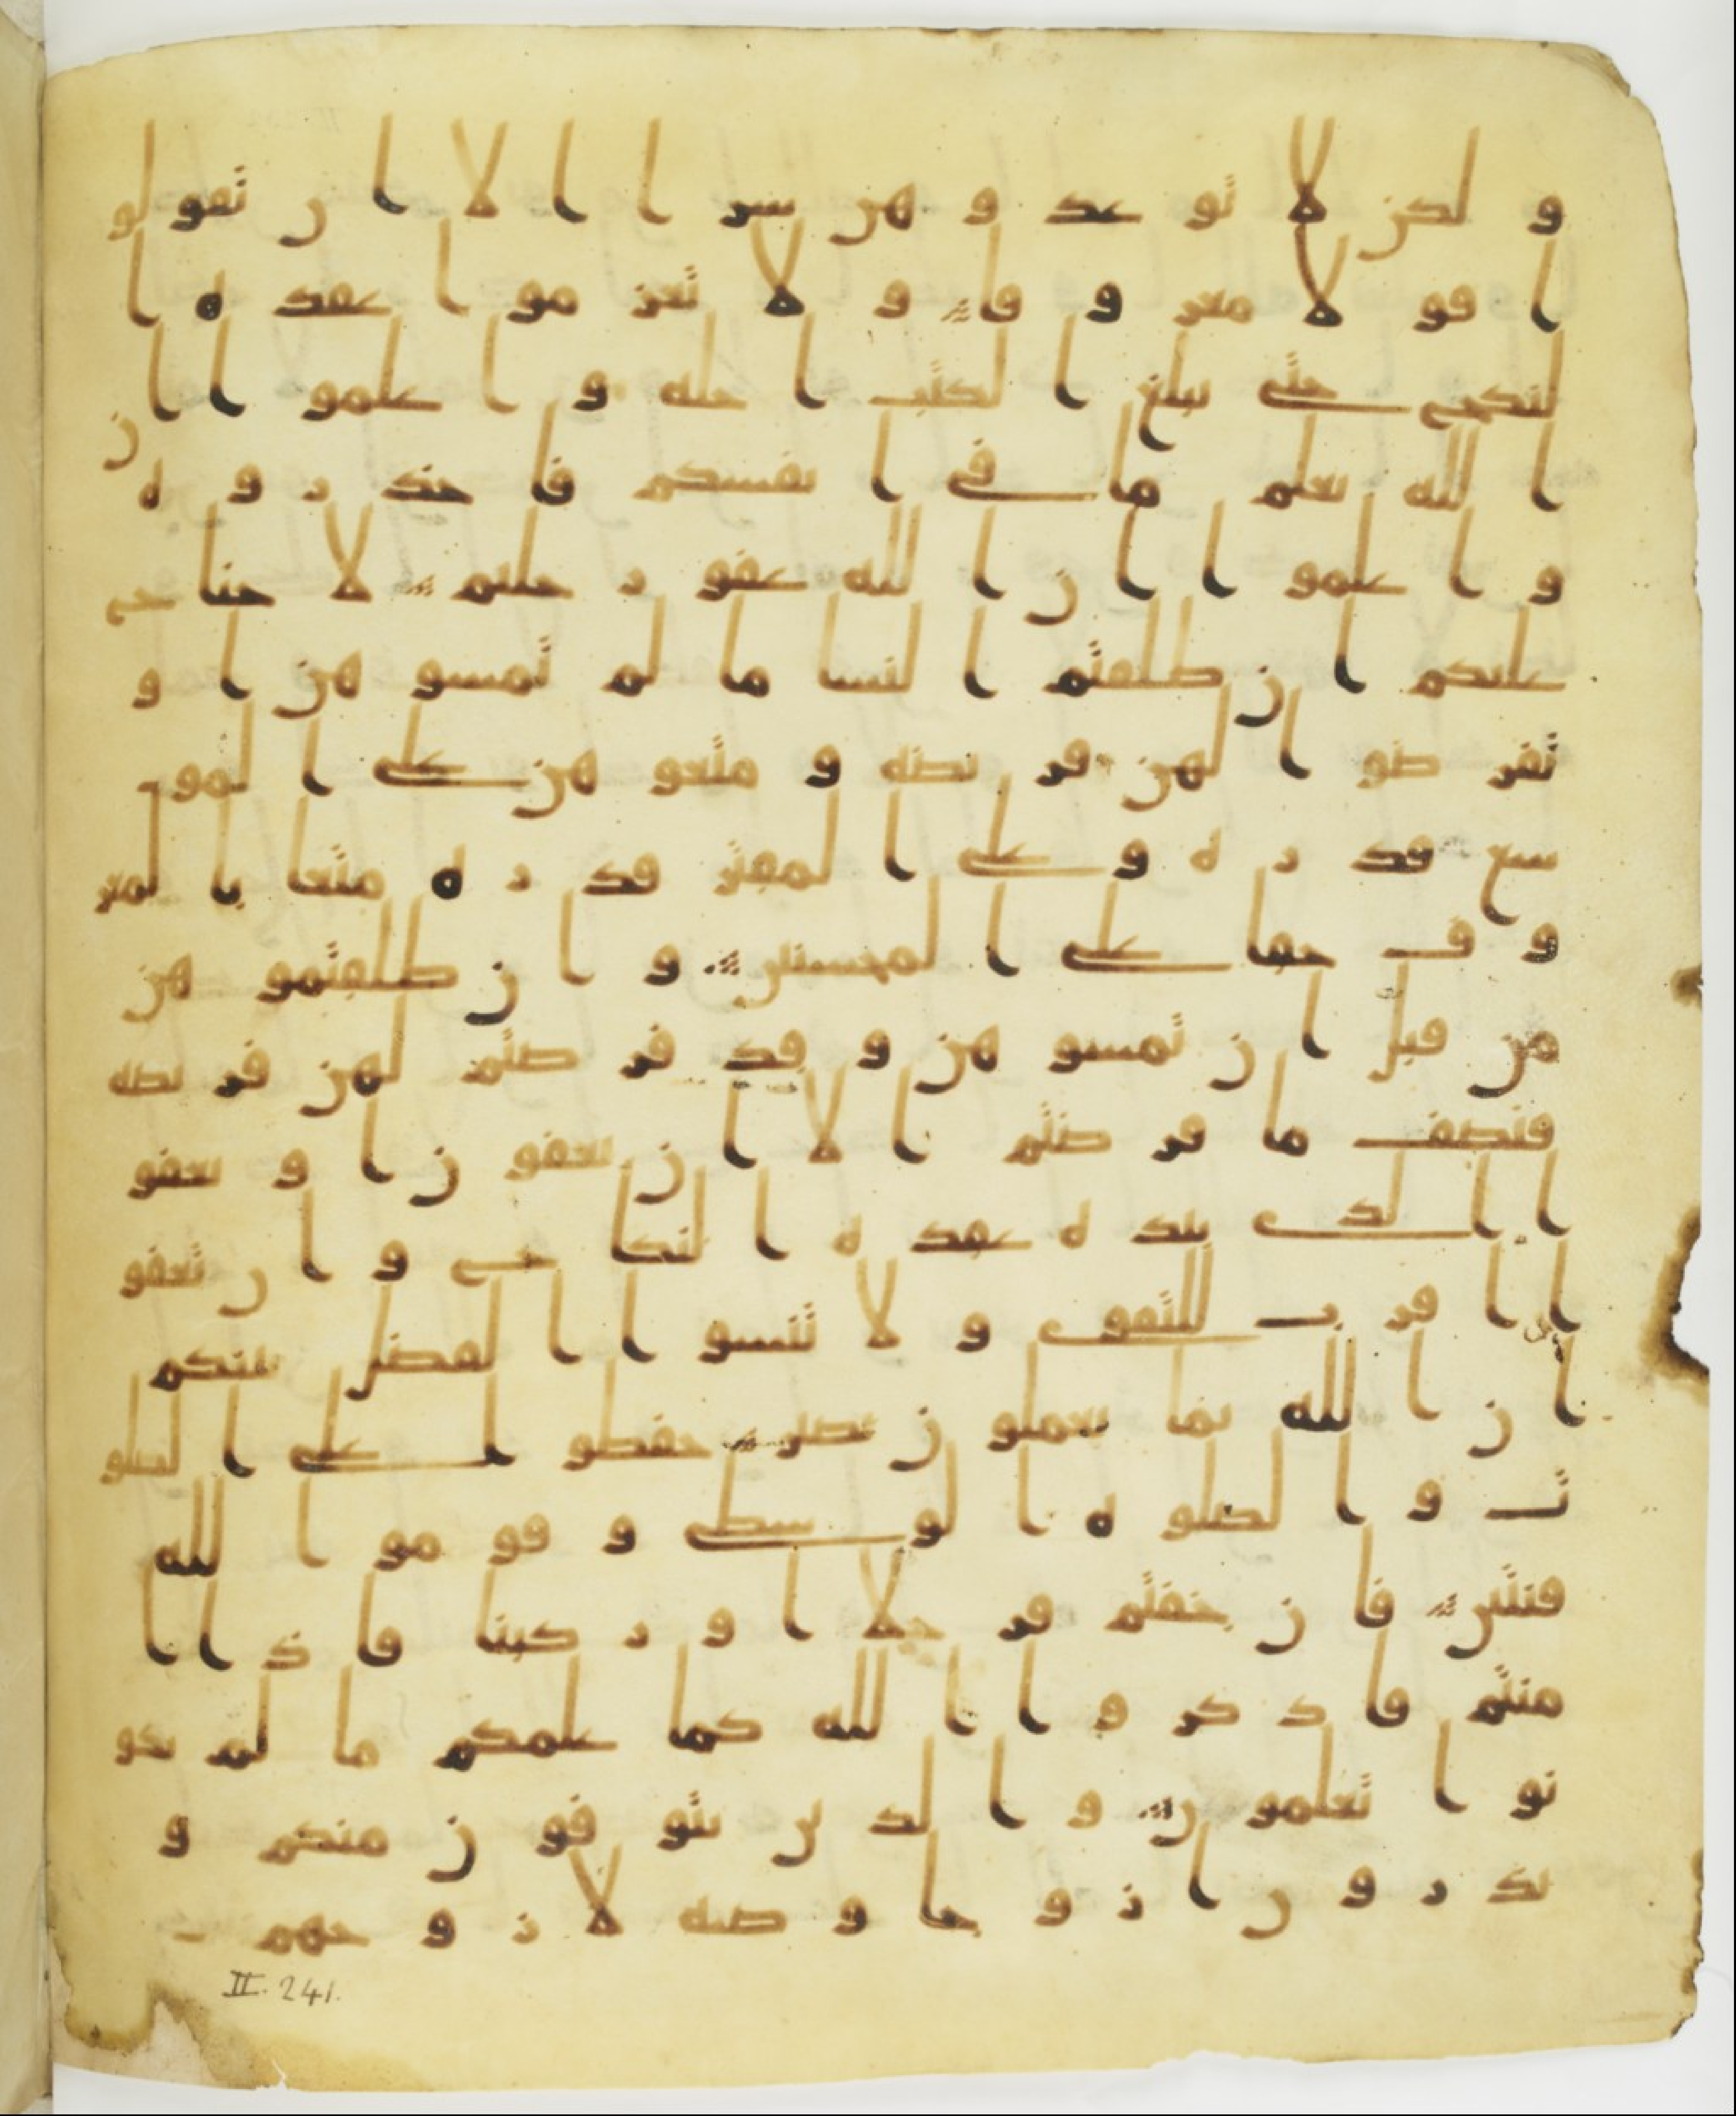 ولكن لا توعدوهن سرا الا ان تقولو
ا قولا معروفا ولا تعزموا عقده ا
لنكح حتى يبلغ الكتب اجله واعلموا ان
الله يعلم ما في انفسكم فاحذروه
واعلموا ان الله غفور حليم لا جناح
عليكم ان طلقتم النسا ما لم تمسوهن او
تفرضوا لهن فريضه ومتعوهن على المو
سع قدره وعلى المقتر قدره متعا بالمعر
وف حقا على المحسنين وان طلقتموهن
من قبل ان تمسوهن وقد فرضتم لهن فريضه
فنصف ما فرضتم الا ان يعفون او يعفو
ا الذي بيده عقده النكاح وان تعفو
ا اقرب للتقوى ولا تنسوا الفضل بينكم
ان الله بما يعملون بصير حفظوا على الصلو
ت والصلوه الوسطى وقوموا لله
قنتين فان خفتم فرجلا او ركبنا فاذا ا
منتم فاذكروا الله كما علمكم ما لم تكو
نوا تعلمون والذين يتوفون منكم و
يذرون ازوجا وصيه لازوجهم
II. 241.